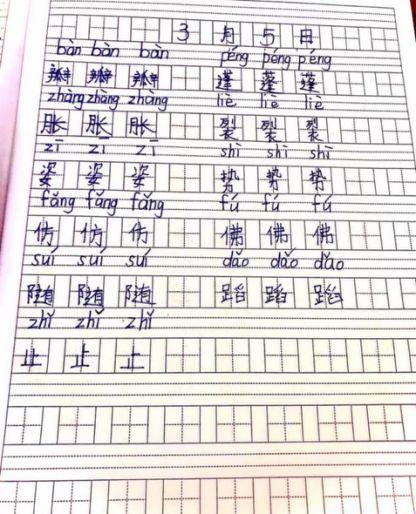 3 月 5 日
bàn bàn bàn péng péng péng
瓣 瓣 瓣 蓬 蓬 蓬
zhàng zhàng zhàng liè liè liè
胀 胀 胀 裂 裂 裂
zī zī zī shì shì shì
姿 姿 姿 势 势 势
fǎng fǎng fǎng fú fú fú
仿 仿 仿 佛 佛 佛
suí suí suí dǎo dǎo dǎo
随 随 随 蹈 蹈 蹈
zhǐ zhǐ zhǐ
止 止 止